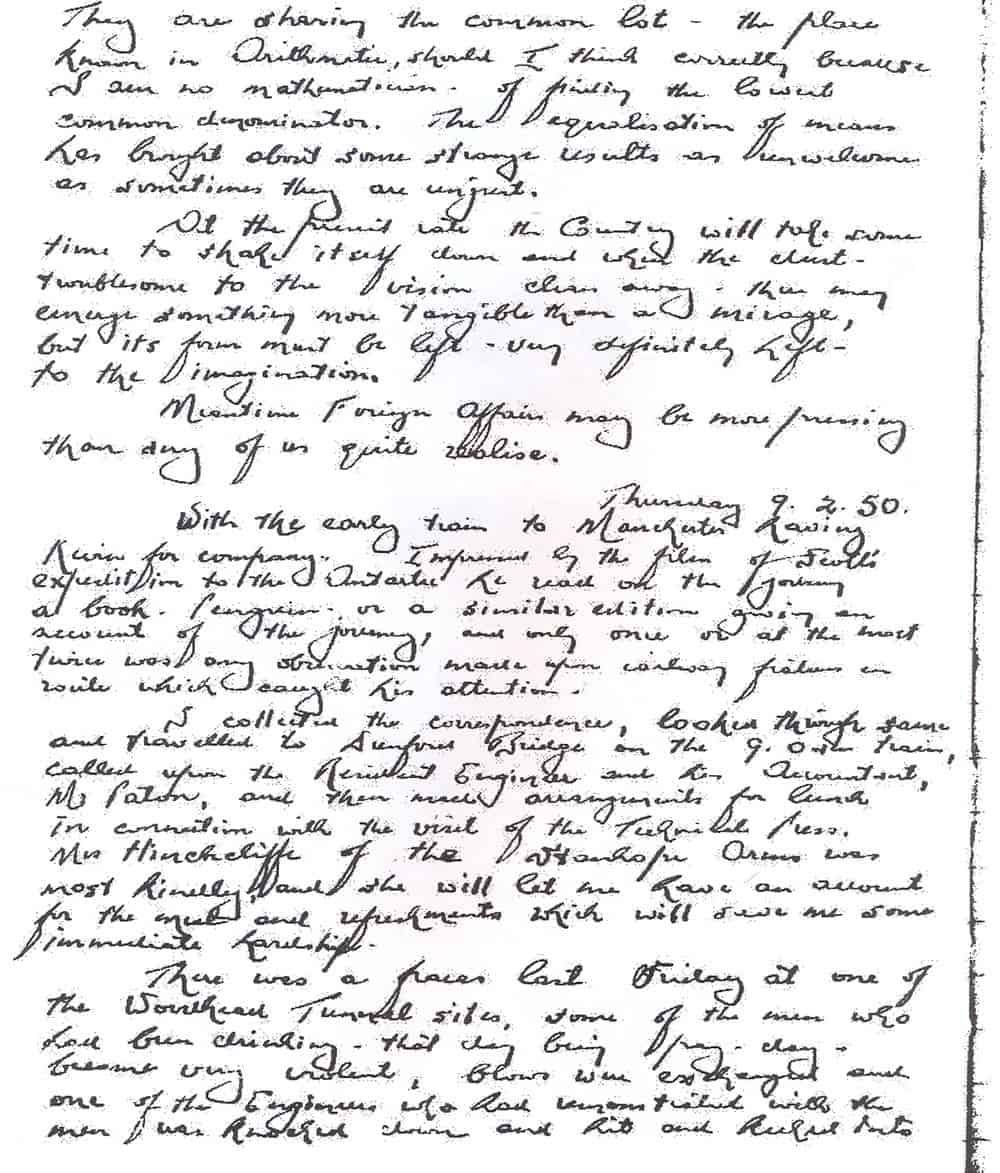 They are sharing the common lot - the place
known in Arithmetic, should I think correctly because
I am no mathematician - of finding the lowest
common denominator. The equalisation of means
has brought about some strange results as unwelcome
as sometimes they are unjust.
At the present rate the Country will take some
time to shake itself down and when the dust -
troublesome to the vision clears away - there may
emerge something more tangible than a mirage,
but its form must be left - very definitely left -
to the imagination.
Meantime Foreign Affairs may be more pressing
than any of us quite realise.
Thursday 9. 2. 50.
With the early train to Manchester having
Kevin for company. Impressed by the film of Scott's
expedition to the Antartic he read on the journey
a book - Penguin - or a similar edition giving an
account of the journey, and only once or at the most
twice was any observation made upon railway features en
route which caught his attention.
I collected the correspondence, looked through same
and travelled to Dunford Bridge on the 9. 0am train,
called upon the Resident Engineer and his Accountant,
Mr Paton, and then made arrangements for lunch
in connection with the visit of the Technical Press.
Mrs Hinchcliffe of the Stanhope Arms was
most kindly, and she will let me have an account
for the meal and refreshments which will save me some
immediate hardship.
There was a fracas last Friday at one of
the Woodhead Tunnel sites, some of the men who
had been drinking - that day being pay-day -
became very violent, blows were exchanged and
one of the Engineers who had remonstrated with the
men was knocked down and hit and kicked into